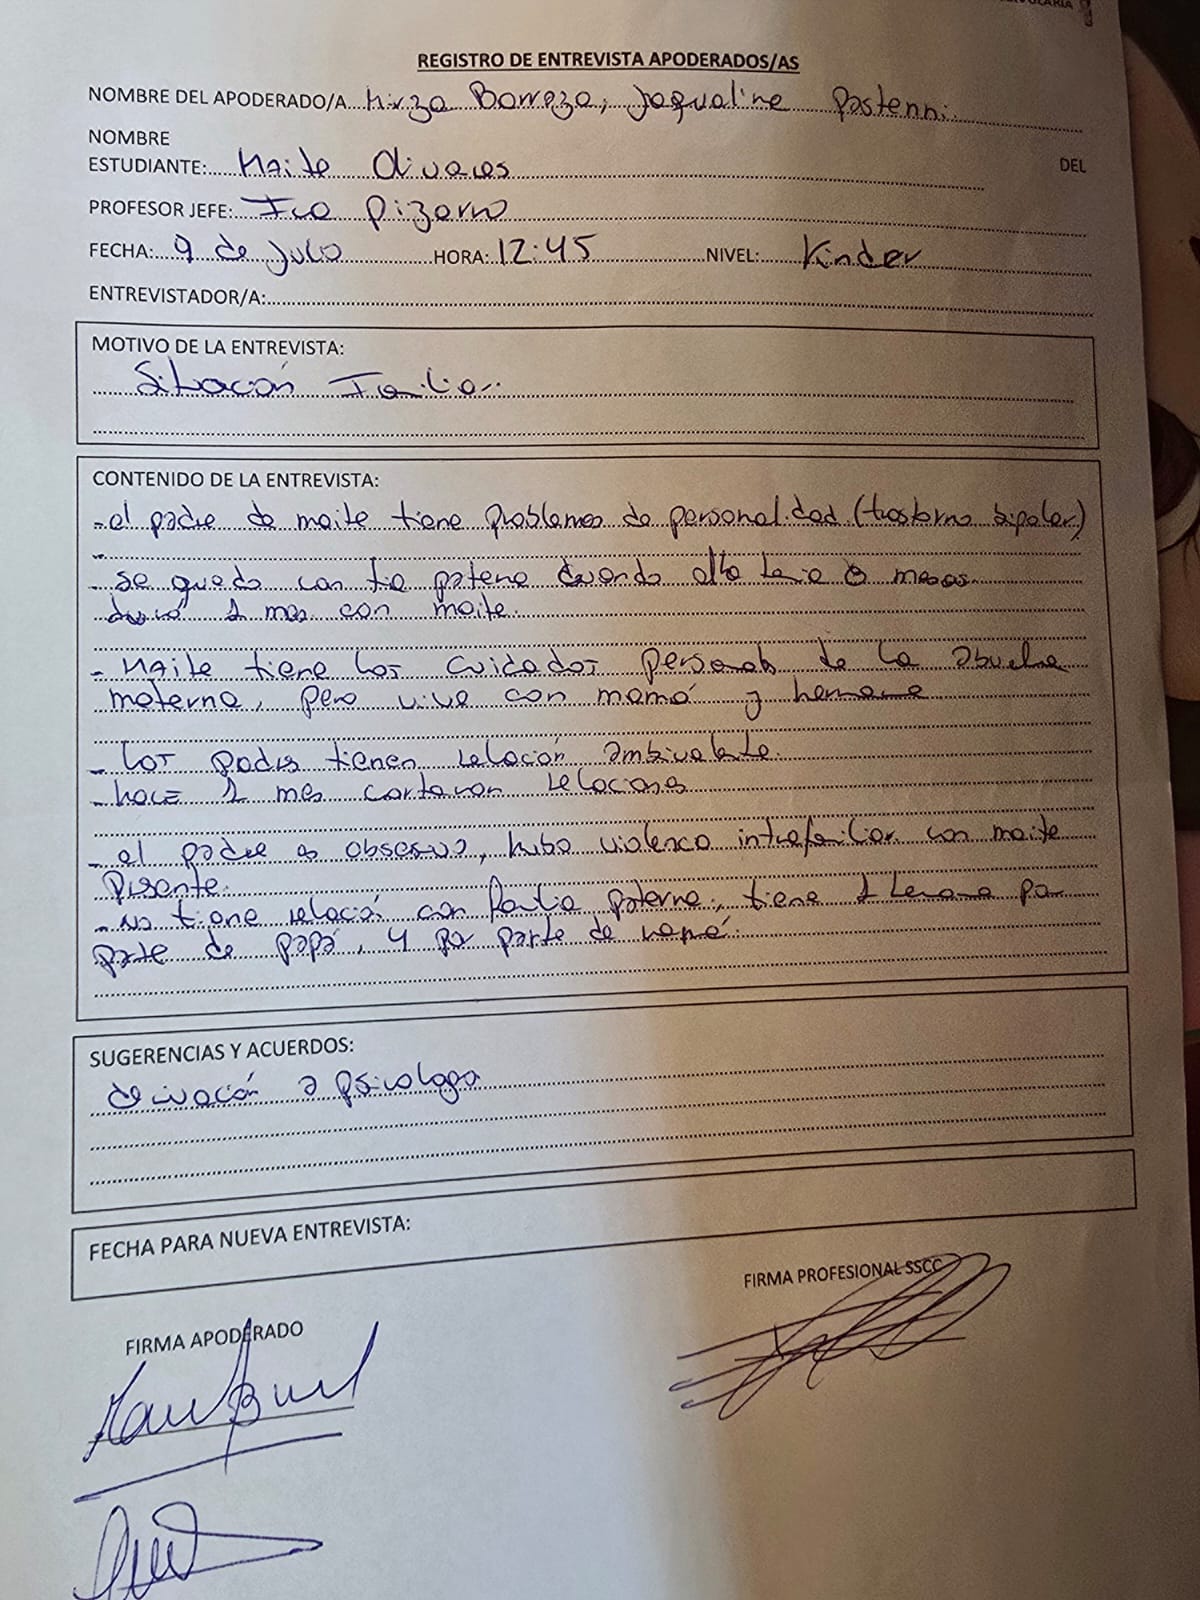 REGISTRO DE ENTREVISTA APODERADOS/AS
NOMBRE DEL APODERADO/A Mirza Barreza, Jaqualine
NOMBRE
ESTUDIANTE: Maite Olivares DEL
PROFESOR JEFE: Fca Pizarro
FECHA: 9 de Julio HORA: 12:45 NIVEL: Kinder
ENTREVISTADOR/A:
MOTIVO DE LA ENTREVISTA:
Situación Familiar
CONTENIDO DE LA ENTREVISTA:
- el padre de maite tiene problemas de personalidad (trastorno bipolar)
- se quedo con tia paterna cuando ella tenia 8 meses
duró 1 mes con maite.
- Maite tiene los cuidados personales de la abuela
materna, pero vive con mamá y hermana
- los padres tienen relación ambivalente.
- hace 1 mes cortaron relaciones
- el padre es obsesivo, hubo violencia intrafamiliar con maite
presente.
- no tiene relación con familia paterna, tiene 1 hermana por
parte de papá, y por parte de mamá.
SUGERENCIAS Y ACUERDOS:
derivación a psicologa
FECHA PARA NUEVA ENTREVISTA:
FIRMA PROFESIONAL SSCC
FIRMA APODERADO